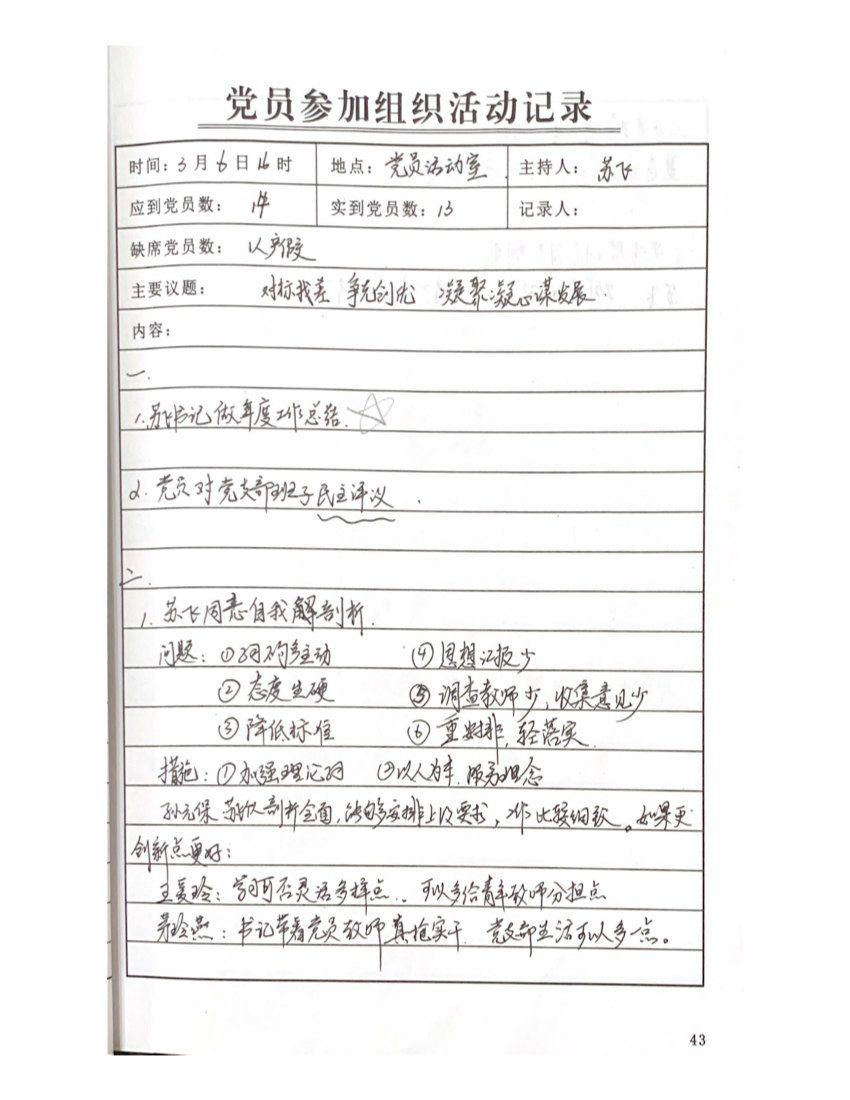 党员参加组织活动记录
时间：3月6日16时 地点：党员活动室 主持人：苏飞
应到党员数：14 实到党员数：13 记录人：
缺席党员数：
主要议题：对标找差 争先创优 凝聚凝心谋发展.
内容：
一.
1.苏飞书记做年度工作总结.
2.党员对党支部班子民主评议.
二.
1.苏飞同志自我解剖析.
问题：①习不够主动 ④思想汇报少
②态度生硬 ⑤调查教师少，收集意见少
③降低标准 ⑥重安排，轻落实.
措施：①加强理论习 ②以人为本.服务理念
孙元保 剖析全面，能够安排上级要求，工作比较细致。如果更
创新点更好：
王夏玲：学习可否灵活多样点.，可以多给青年教师分担点
茅玲燕：书记带着党员教师真抢实干.党支部生活可以多一点。
43